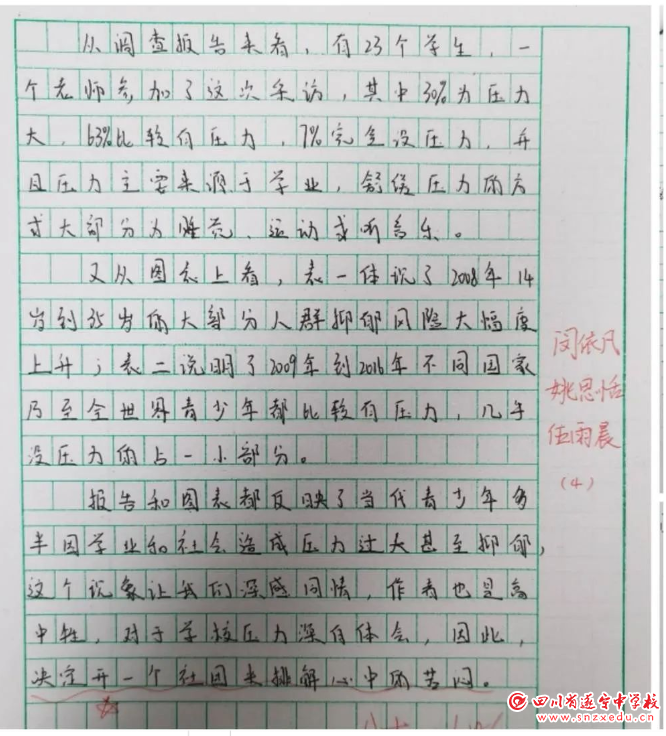 从调查报告来看，有23个学生，一
个老师参加了这次采访，其中30%为压力
大，63%比较有压力，7%完全没压力，并
且压力主要来源于学业，舒缓压力的方
式大部分为睡觉、运动或听音乐。
又从图表上看，表一体现了2008年14
岁到35岁的大部分人群抑郁风险大幅度
上升；表二说明了2009年到2016年不同国家
乃至全世界青少年都比较有压力，几乎
没压力的占一小部分。
报告和图表都反映了当代青少年多
半因学业和社会造成压力过大甚至抑郁，
这个现象让我们深感同情，作者也是高
中生，对于学校压力深有体会，因此，
决定开一个社团来排解心中的苦闷。
闵依凡
姚思恬
任雨晨
（4）
四川省遂宁中学校
www.snzxedu.cn